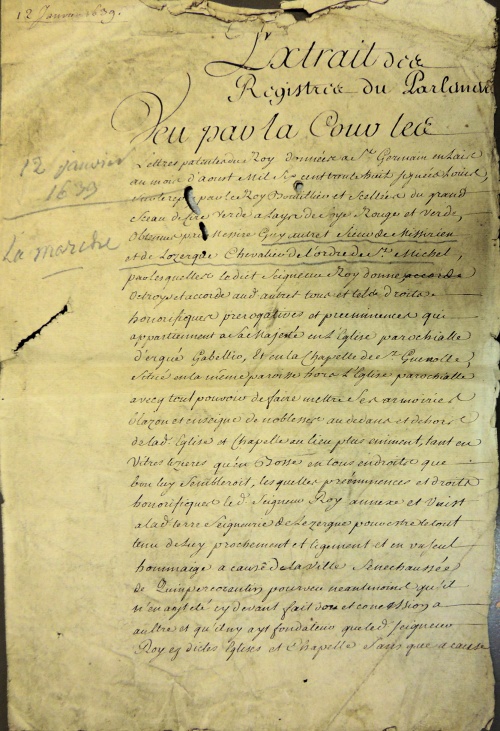 12 Janvier 1639.
Extrait des
Registres du Parlement
Veu par la Cour les
12 janvier
1639
La marche
Lettres patentes du Roy données a St. Germain en Laie
au mois d'aoust Mil Six cent trente huit signées Louis,
par le Roy Bouthillier et Scellées du grand
Sceau de Cire Verde a Lays de Soye Rouges et Verde,
Obtenues par Messire Guy autret Sieur de Missirien
et de Lezergue Chevalier de l'ordre de St. Michel,
par lesquelles le dict Seigneur Roy donne accorde
Octroy et accorde aud. autret tous et tels droits
honorifiques prerogatives et preeminences qui
appartiennent a Sa Majesté en L'Eglise parochialle
d'ergue Gaberic, et en la Chapelle de St. Guenolle,
Sittué en la même paroisse hors L'Eglise parochialle
avecq tout pouvoir de faire mettre Ses armoiries
blazon et enseigne de noblesse au dedans et dehors
de lad. Eglise et Chapelle au lieu plus eminent, tant en
Vitres qu'en Bosse en tous endroits que
bon luy Sembleroit, lesquelles préeminences et droits
honorifiques le d. Seigneur Roy annexe et Unist
a lad. terre Seigneurie de Lezergue pour estre le tout
tenu de Luy prochement et ligement et en un seul
hommaige a cause de La Ville Senechaussée
de Quimpercorantin pourveu neantmoins qu'il
n'en ayt été cy devant fait don et concession a
aultre et qu'il ny ayt fondateur que led. seigneur
Roy es dictes Eglises et Chapelle Sans que a cause